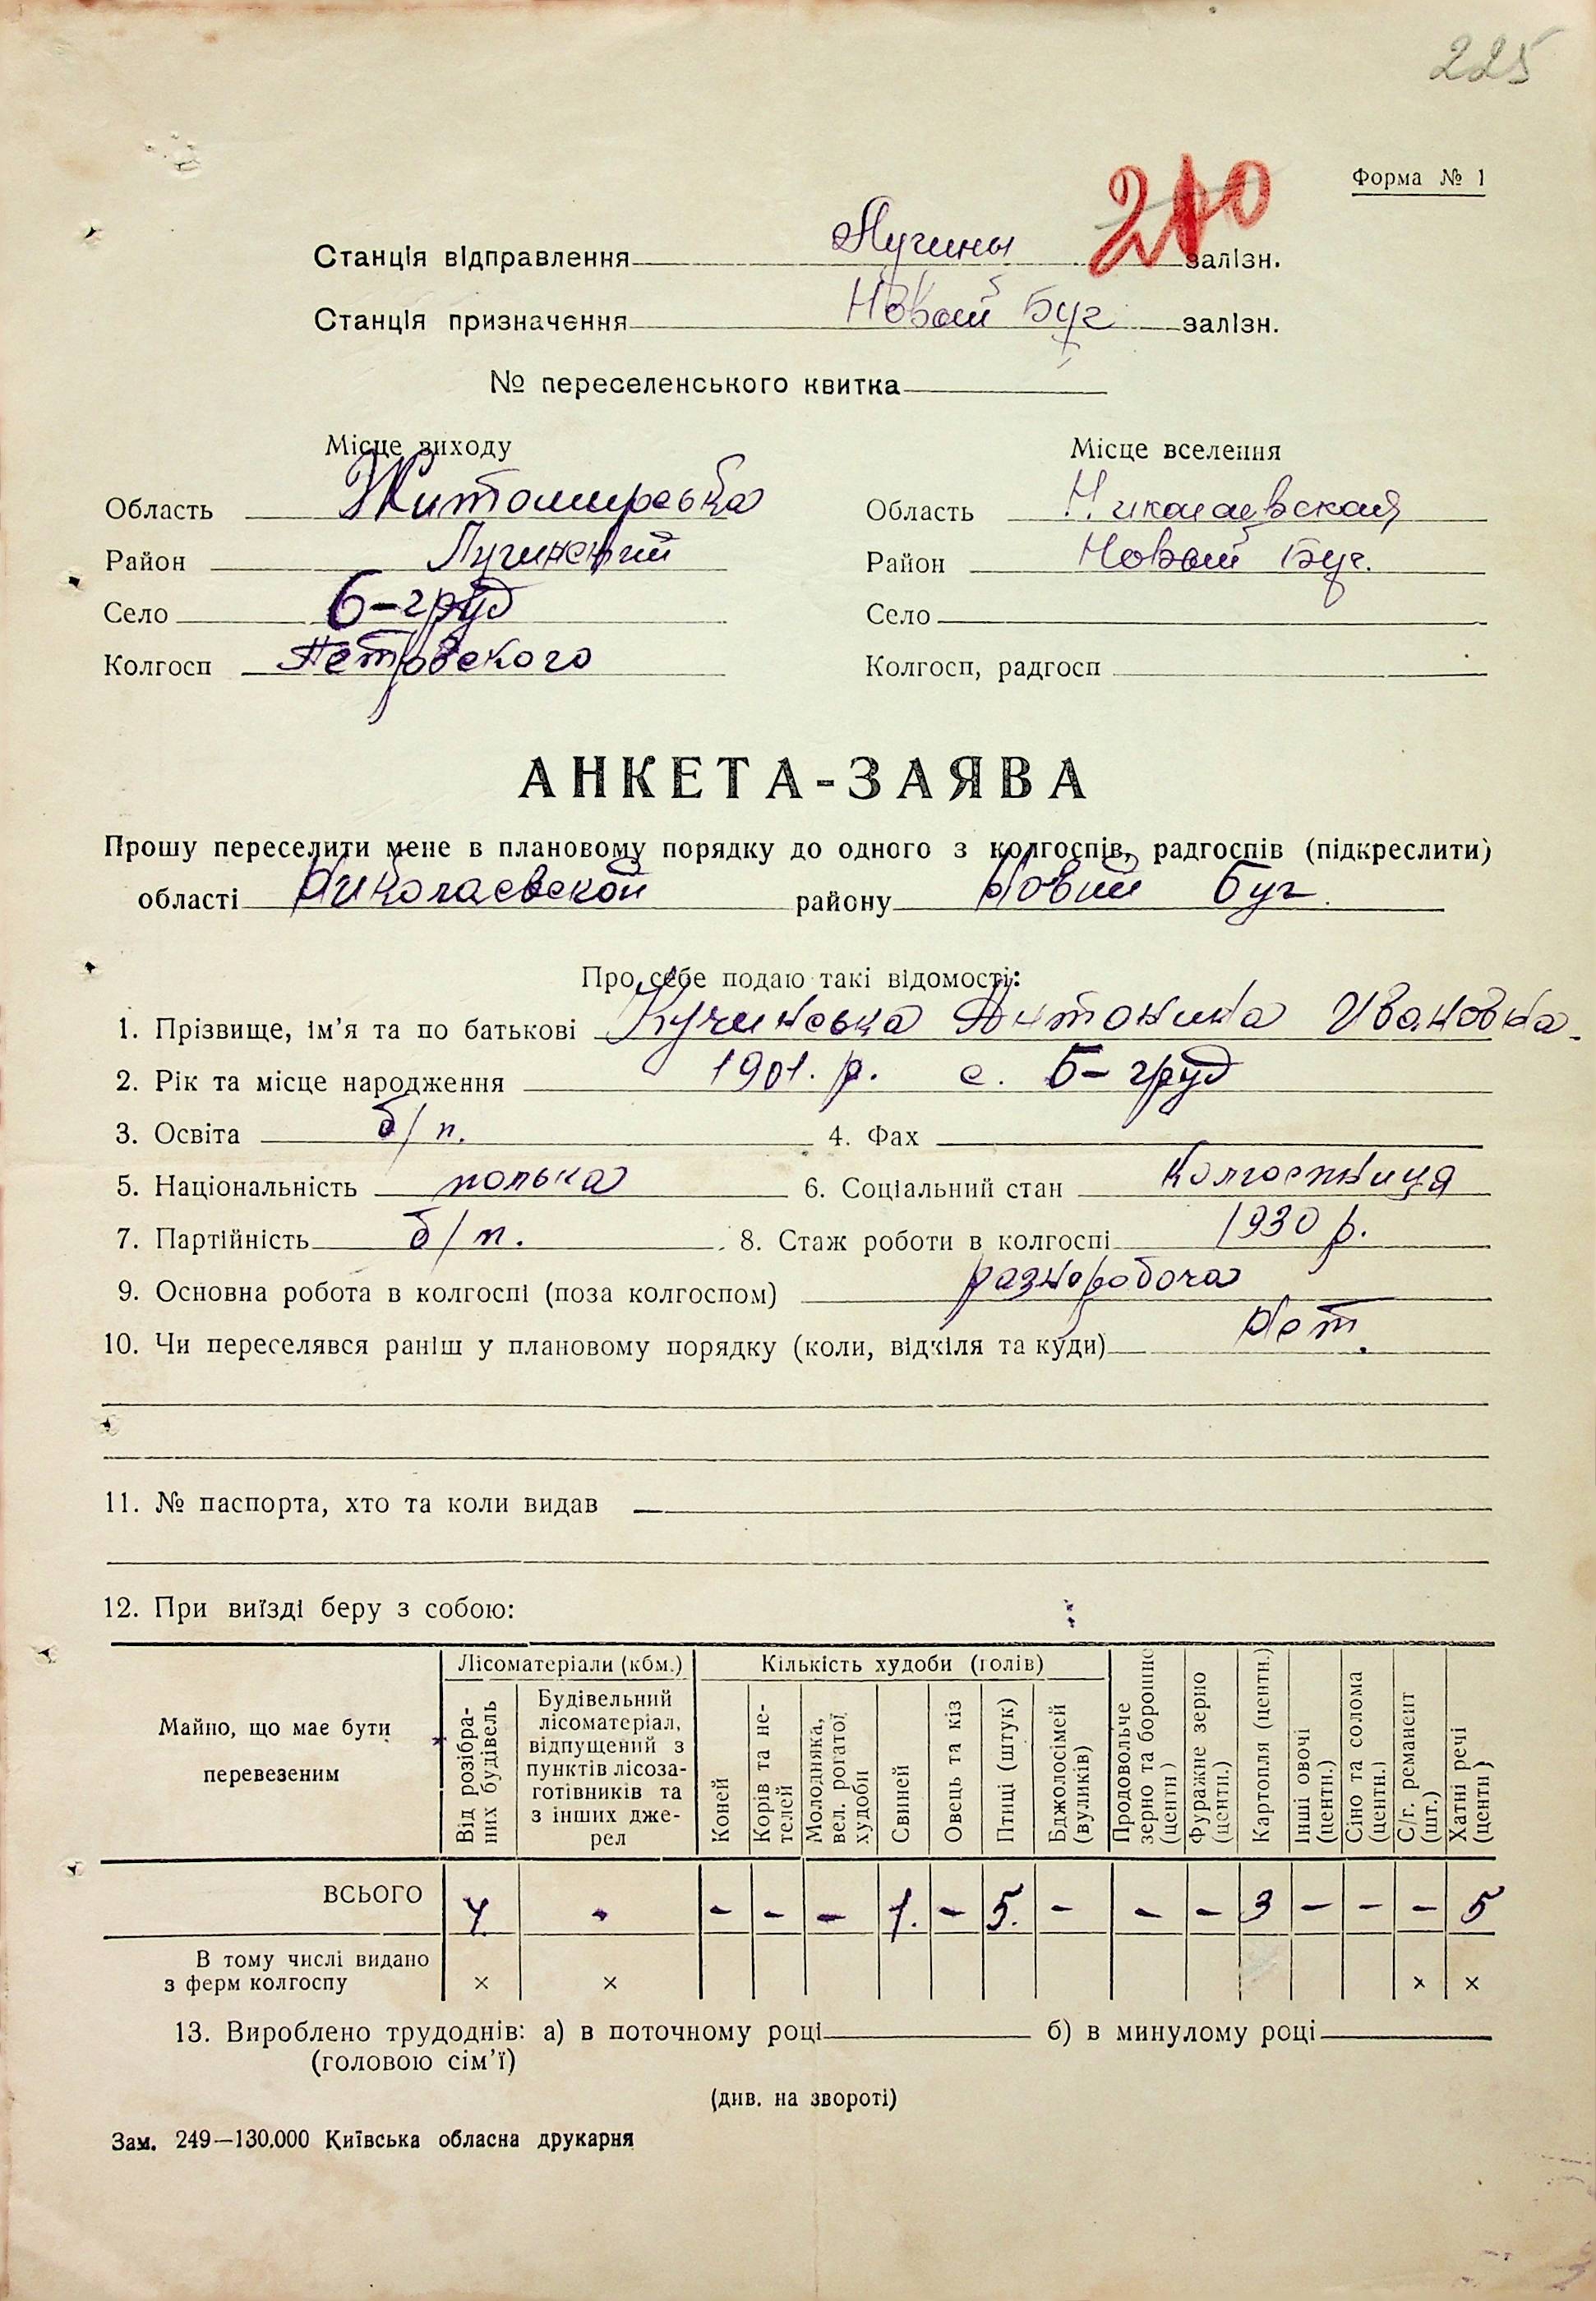 225
Форма № 1
210
Станція відправлення Лугины залізн.
Станція призначення Новый Буг залізн.
№ переселенського квитка
Місце виходу
Місце вселення
Область Житомирська
Область Николаевская
Район Лугинський
Район Новый Буг.
Село Б-груд
Село
Колгосп Петровского
Колгосп, радгосп
АНКЕТА-ЗАЯВА
Прошу переселити мене в плановому порядку до одного з колгоспів, радгоспів (підкреслити)
області Николаевской району Новий Буг.
Про себе подаю такі відомості:
1. Прізвище, ім'я та по батькові Кучинська Антонина Ивановна.
2. Рік та місце народження 1901. р. с. Б-груд
3. Освіта б/п. 4. Фах
5. Національність полька 6. Соціальний стан колгоспниця
7. Партійність б/п. 8. Стаж роботи в колгоспі 1930 р.
9. Основна робота в колгоспі (поза колгоспом) разноробоча
10. Чи переселявся раніш у плановому порядку (коли, відкіля та куди) Нет.
11. № паспорта, хто та коли видав
12. При виїзді беру з собою:
Майно, що має бути перевезеним
Лісоматеріали (кбм.)
Кількість худоби (голів)
Від розібраних будівель
Будівельний лісоматеріал, відпущений з пунктів лісозаготівників та з інших джерел
Коней
Корів та нетелей
Молодняка, вел. рогатої худоби
Свиней
Овець та кіз
Птиці (штук)
Бджолосімей (вуликів)
Продовольче зерно та борошно (центн.)
Фуражне зерно (центн.)
Картопля (центн.)
Інші овочі (центн.)
Сіно та солома (центн.)
С/г. реманент (шт.)
Хатні речі (центн.)
ВСЬОГО 4 - - - - 1. - 5. - - - 3 - - - 5
В тому числі видано
з ферм колгоспу × × × ×
13. Вироблено трудоднів: а) в поточному році б) в минулому році
(головою сім'ї)
(див. на звороті)
Зам. 249—130.000 Київська обласна друкарня